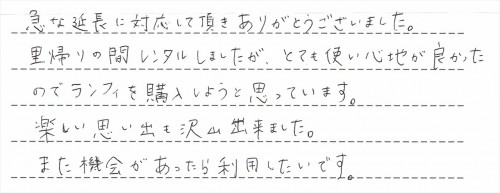 急な延長に対応して頂きありがとうございました。
里帰りの間レンタルしましたが、とても使い心地が良かった
のでランフィを購入しようと思っています。
楽しい思い出も沢山出来ました。
また機会があったら利用したいです。